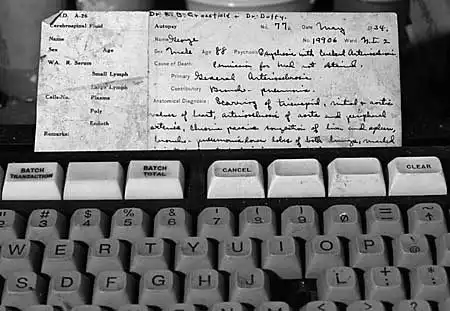 M.D. A-26
Cerebrospinal Fluid
Name
Sex Age
WA. R. Serum
Small Lymph
Large Lymph
Cells-No. Plasma
Poly
Endoth
Remarks:
Dr. E. B. Dr. Duffy.
Autopsy No. 77. Date May 1934.
Name George No 19906 Ward
Sex Male Age 88. Psychosis Psychosis with Cerebral Arteriosclerosis
Cause of Death: Permission for and not stained.
Primary General Arteriosclerosis
Contributory Broncho-pneumonia.
Anatomical Diagnosis: Scarring of tricuspid, mitral & aortic
valves of heart, arteriosclerosis of aorta and peripheral
arteries, chronic passive congestion of liver and spleen
broncho-pneumonia lower lobes of both lungs, marked
BATCH TRANSACTION
BATCH TOTAL
CANCEL
CLEAR
" # $ % & ' ( ) 0 = ~
2 3 4 5 6 7 8 9 ^
W E R T Y U I O P @
S D F G H J L + *
; :
< > ?